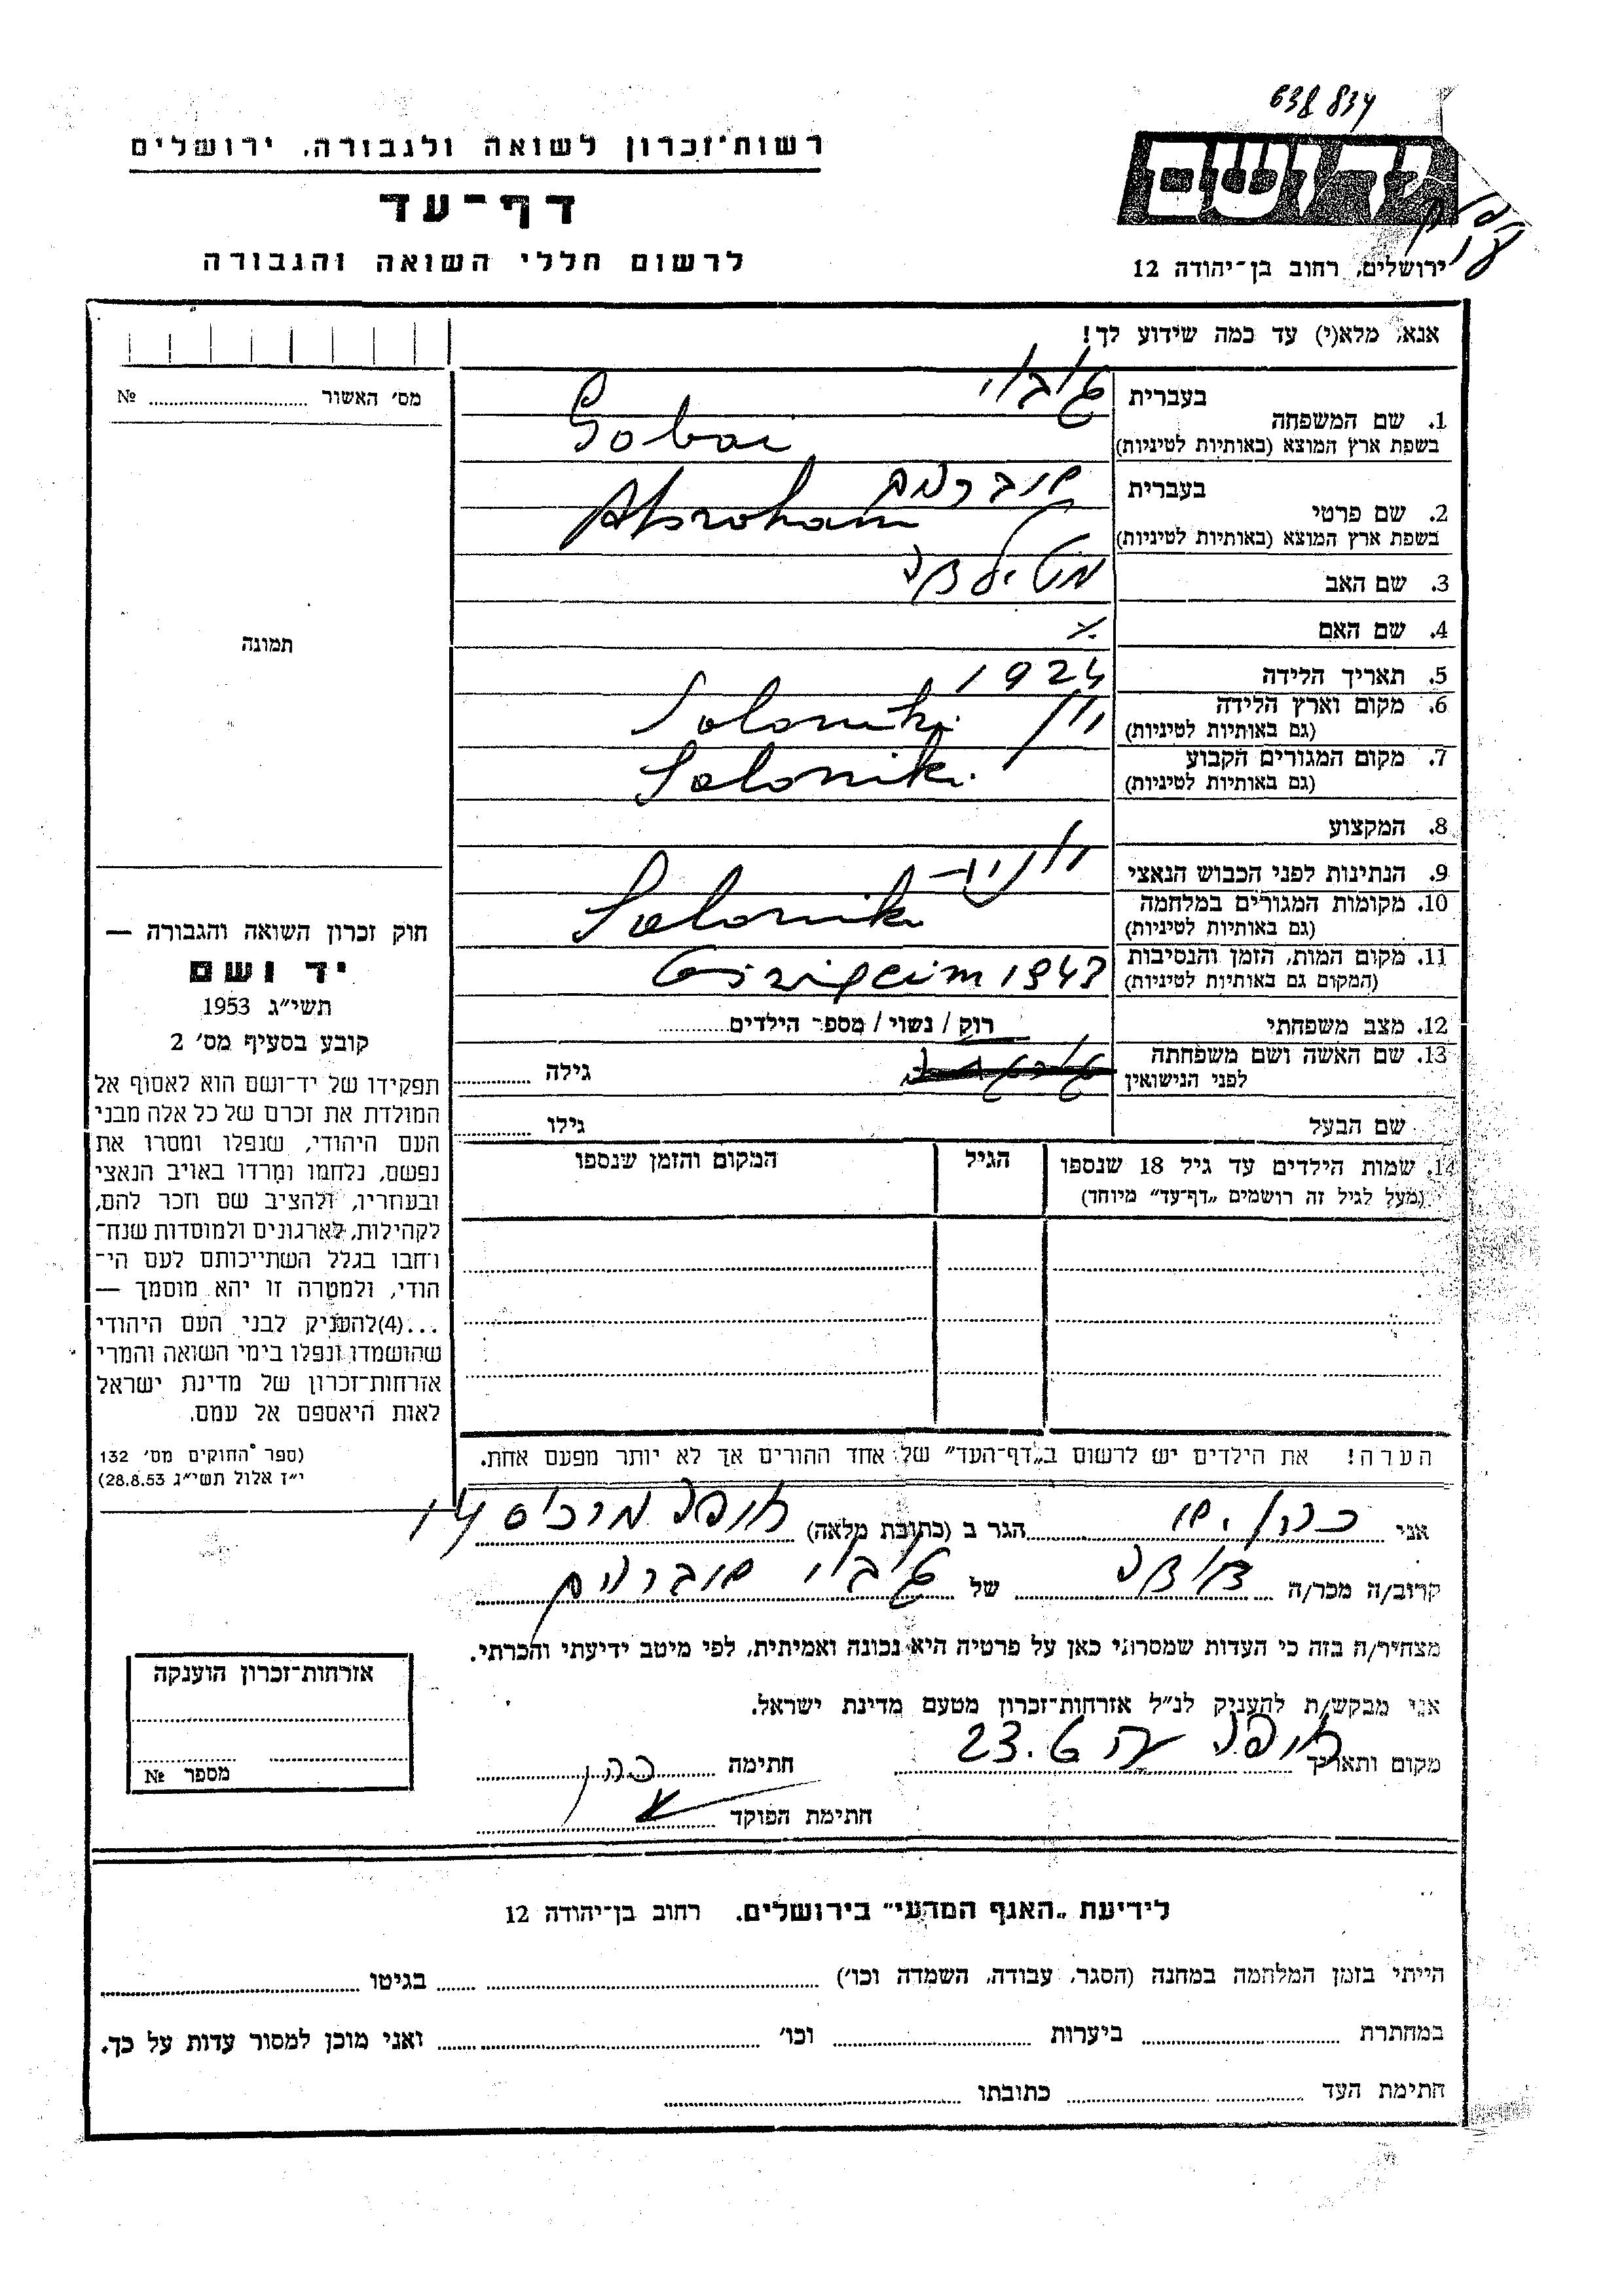 638 834
יד ושם
ירושלים, רחוב בן־יהודה 12
רשות־זכרון לשואה ולגבורה, ירושלים
דף־עד
לרשום חללי השואה והגבורה
אנא, מלא(י) עד כמה שידוע לך!
מס׳ האשור № 
1. שם המשפחה
בעברית
בשפת ארץ המוצא (באותיות לטיניות)
Gobai
2. שם פרטי
בעברית אברהם
בשפת ארץ המוצא (באותיות לטיניות) Abroham
3. שם האב
4. שם האם
5. תאריך הלידה 1924
6. מקום וארץ הלידה יון Saloniki
(גם באותיות לטיניות)
7. מקום המגורים הקבוע Saloniki
(גם באותיות לטיניות)
8. המקצוע
9. הנתינות לפני הכבוש הנאצי יונית
10. מקומות המגורים במלחמה Saloniki
(גם באותיות לטיניות)
11. מקום המות, הזמן והנסיבות 1943
(המקום גם באותיות לטיניות)
12. מצב משפחתי רוק / נשוי / מספר הילדים
13. שם האשה ושם משפחתה
לפני הנישואין
גילה
שם הבעל גילו
14. שמות הילדים עד גיל 18 שנספו
(מעל לגיל זה רושמים „דף־עד״ מיוחד)
הגיל
המקום והזמן שנספו
הערה! את הילדים יש לרשום ב„דף־העד״ של אחד ההורים אך לא יותר מפעם אחת.
תמונה
חוק זכרון השואה והגבורה —
יד ושם
תשי״ג 1953
קובע בסעיף מס׳ 2
תפקידו של יד־ושם הוא לאסוף אל
המולדת את זכרם של כל אלה מבני
העם היהודי, שנפלו ומסרו את
נפשם, נלחמו ומרדו באויב הנאצי
ובעוזריו, ולהציב שם וזכר להם,
לקהילות, לארגונים ולמוסדות שנח־
רחבו בגלל השתייכותם לעם הי־
הודי, ולמטרה זו יהא מוסמך —
...(4)להעניק לבני העם היהודי
שהושמדו ונפלו בימי השואה והמרי
אזרחות־זכרון של מדינת ישראל
לאות היאספם אל עמם.
(ספר החוקים מס׳ 132
י״ז אלול תשי״ג 28.8.53)
אני כהן הגר ב (כתובת מלאה) חיפה 14
קרוב/ה מכר/ה דודה של אברהם
מצהיר/ה בזה כי העדות שמסרתי כאן על פרטיה היא נכונה ואמיתית, לפי מיטב ידיעתי והכרתי.
אני מבקש/ת להעניק לנ״ל אזרחות־זכרון מטעם מדינת ישראל.
מקום ותאריך חיפה 23.6 חתימה כהן
חתימת הפוקד
אזרחות־זכרון הוענקה
מספר №
לידיעת „האגף המדעי״ בירושלים. רחוב בן־יהודה 12
הייתי בזמן המלחמה במחנה (הסגר, עבודה, השמדה וכו׳) בגיטו
במחתרת ביערות וכו׳ ואני מוכן למסור עדות על כך.
חתימת העד כתובתו